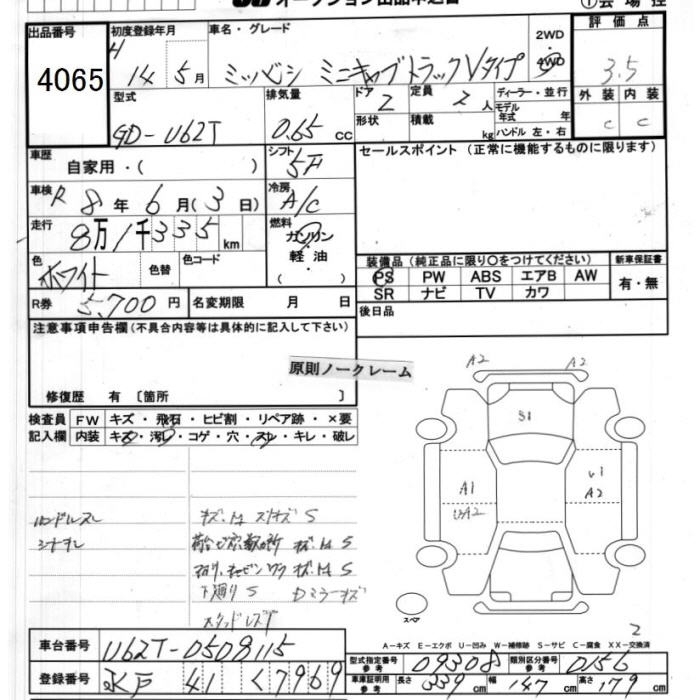 オークション出品申込書
①会場控
出品番号 4065
初度登録年月 H 14年 5月
車名・グレード ミツビシ ミニキャブトラック Vタイプ
2WD
4WD
評価点 3.5
外装 C 内装 C
型式 GD-U62T
排気量 0.65 cc
ドア 2
形状
定員 2人
積載 kg
ディーラー・並行
モデル年式 年
ハンドル 左・右
車歴 自家用・( )
シフト 5F
セールスポイント(正常に機能するものに限ります)
車検 R 8年 6月(3日)
冷房 A/C
走行 8万1千335km
燃料 ガソリン・軽油・( )
色 ホワイト 色替 色コード
装備品(純正品に限り○をつけてください)
PS PW ABS エアB AW
SR ナビ TV カワ
新車保証書 有・無
R券 5,700円 名変期限 月 日
後日品
注意事項申告欄(不具合内容等は具体的に記入して下さい)
原則ノークレーム
修復歴 有〔箇所 〕
検査員記入欄 FW キズ・飛石・ヒビ割・リペア跡・×要
内装 キズ・汚レ・コゲ・穴・スレ・キレ・破レ
ハンドルスレ
シートスレ
キズ・凹 スリキズ S
キズ・凹 S
キズ・凹 S
下廻り S
Dミラーキズ
A2 A2
S1
A1
A2
U1
A2
スペア
2
A-キズ E-エクボ U-凹み W-補修跡 S-サビ C-腐食 XX-交換済
車台番号 U62T-0508115
型式指定番号 参考 09308 類別区分番号 参考 0156
登録番号 水戸 41 く7969
車庫証明用 参考 長さ 339cm 幅 147cm 高さ 179cm